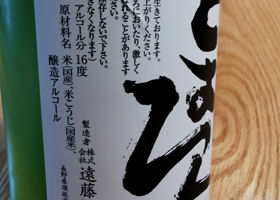 生きております。
上がりください。
ろにおいたり、激しく
れることがあります
存しないで下さい。
さなくなります)
アルコール分 16度
原材料名 米(国産)、米こうじ(国産米)、
醸造アルコール
製造者 株式会社 遠藤
長野県須坂